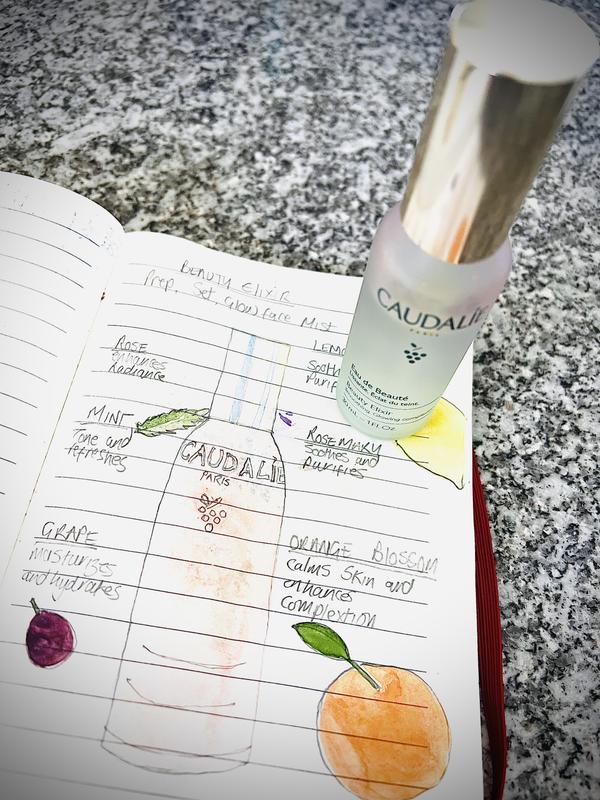 BEAUTY ELIXIR
Prep, Set, Glow Face Mist
ROSE
enhances
Radiance
LEMO
Sooth
Purif
MINT
Tone and
refreshes
ROSEMARY
Soothes and
Purifies
CAUDALIE
PARIS
GRAPE
Moisturises
and hydrates
ORANGE BLOSSOM
calms Skin and
enhances
Complextion
CAUDALIE
PARIS
Eau de Beauté
Éclat du teint
Beauty Elixir
1FL.Oz